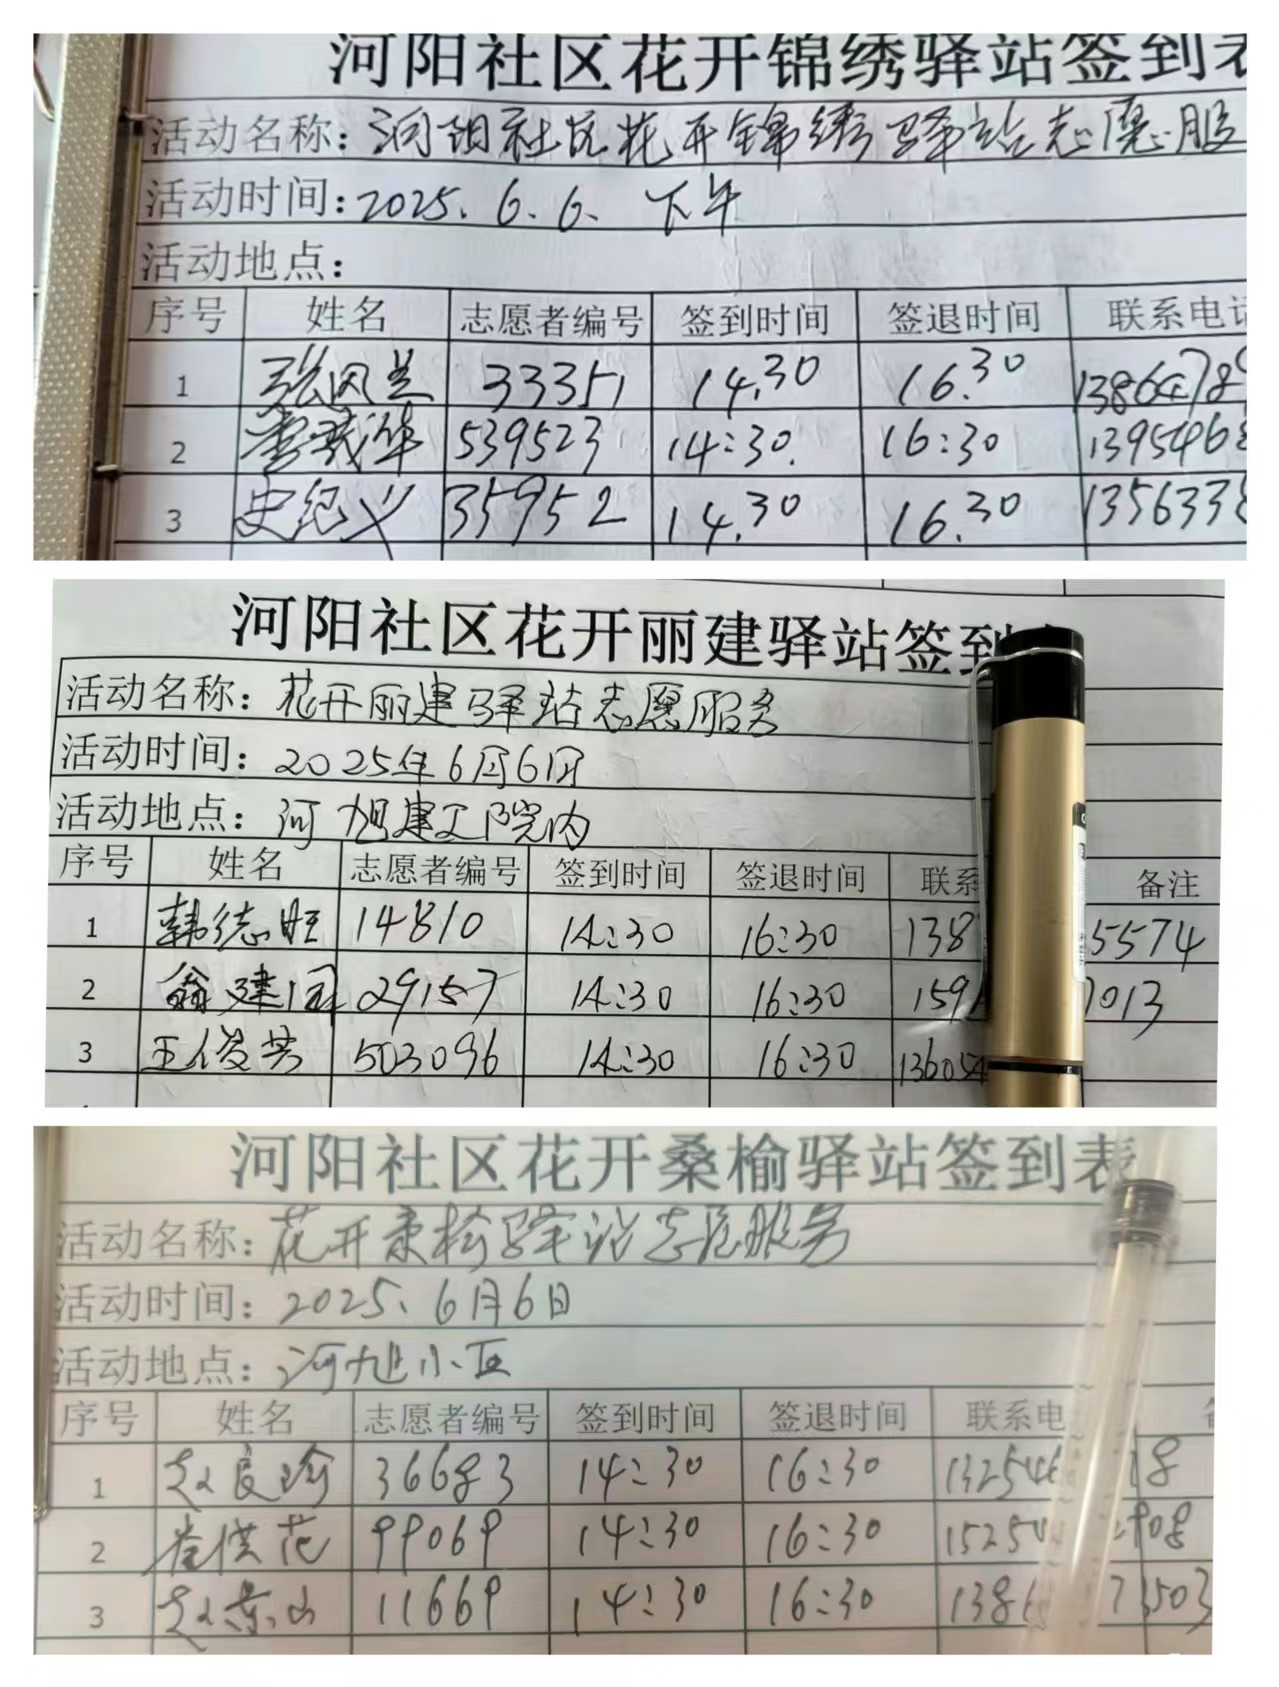 河阳社区花开锦绣驿站签到表
活动名称：河阳社区花开锦绣驿站志愿服
活动时间：2025.6.6. 下午
活动地点：
序号 姓名 志愿者编号 签到时间 签退时间 联系电话
1 张凤兰 33351 14.30 16.30 1386478
2 539523 14:30. 16:30 1395468
3 史纪义 35952 14.30 16.30 1356338
河阳社区花开丽建驿站签到
活动名称：花开丽建驿站志愿服务
活动时间：2025年6月6日
活动地点：河旭建工院内
序号 姓名 志愿者编号 签到时间 签退时间 联系 备注
1 韩德旺 14810 14:30 16:30 138 5574
2 翁建国 29157 14:30 16:30 159 7013
3 王俊芳 503096 14:30 16:30 136054
河阳社区花开桑榆驿站签到表
活动名称：花开桑榆驿站志愿服务
活动时间：2025.6月6日
活动地点：河旭小区
序号 姓名 志愿者编号 签到时间 签退时间 联系电
1 赵良珍 36683 14:30 16:30 132546 18
2 崔洪花 99069 14:30 16:30 15250 908
3 赵景山 11669 14:30 16:30 1386 73503